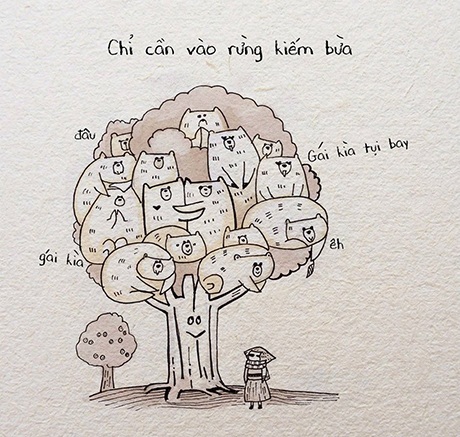 Chỉ cần vào rừng kiếm bừa
đâu
Gái kìa tụi bay
gái kìa
êh